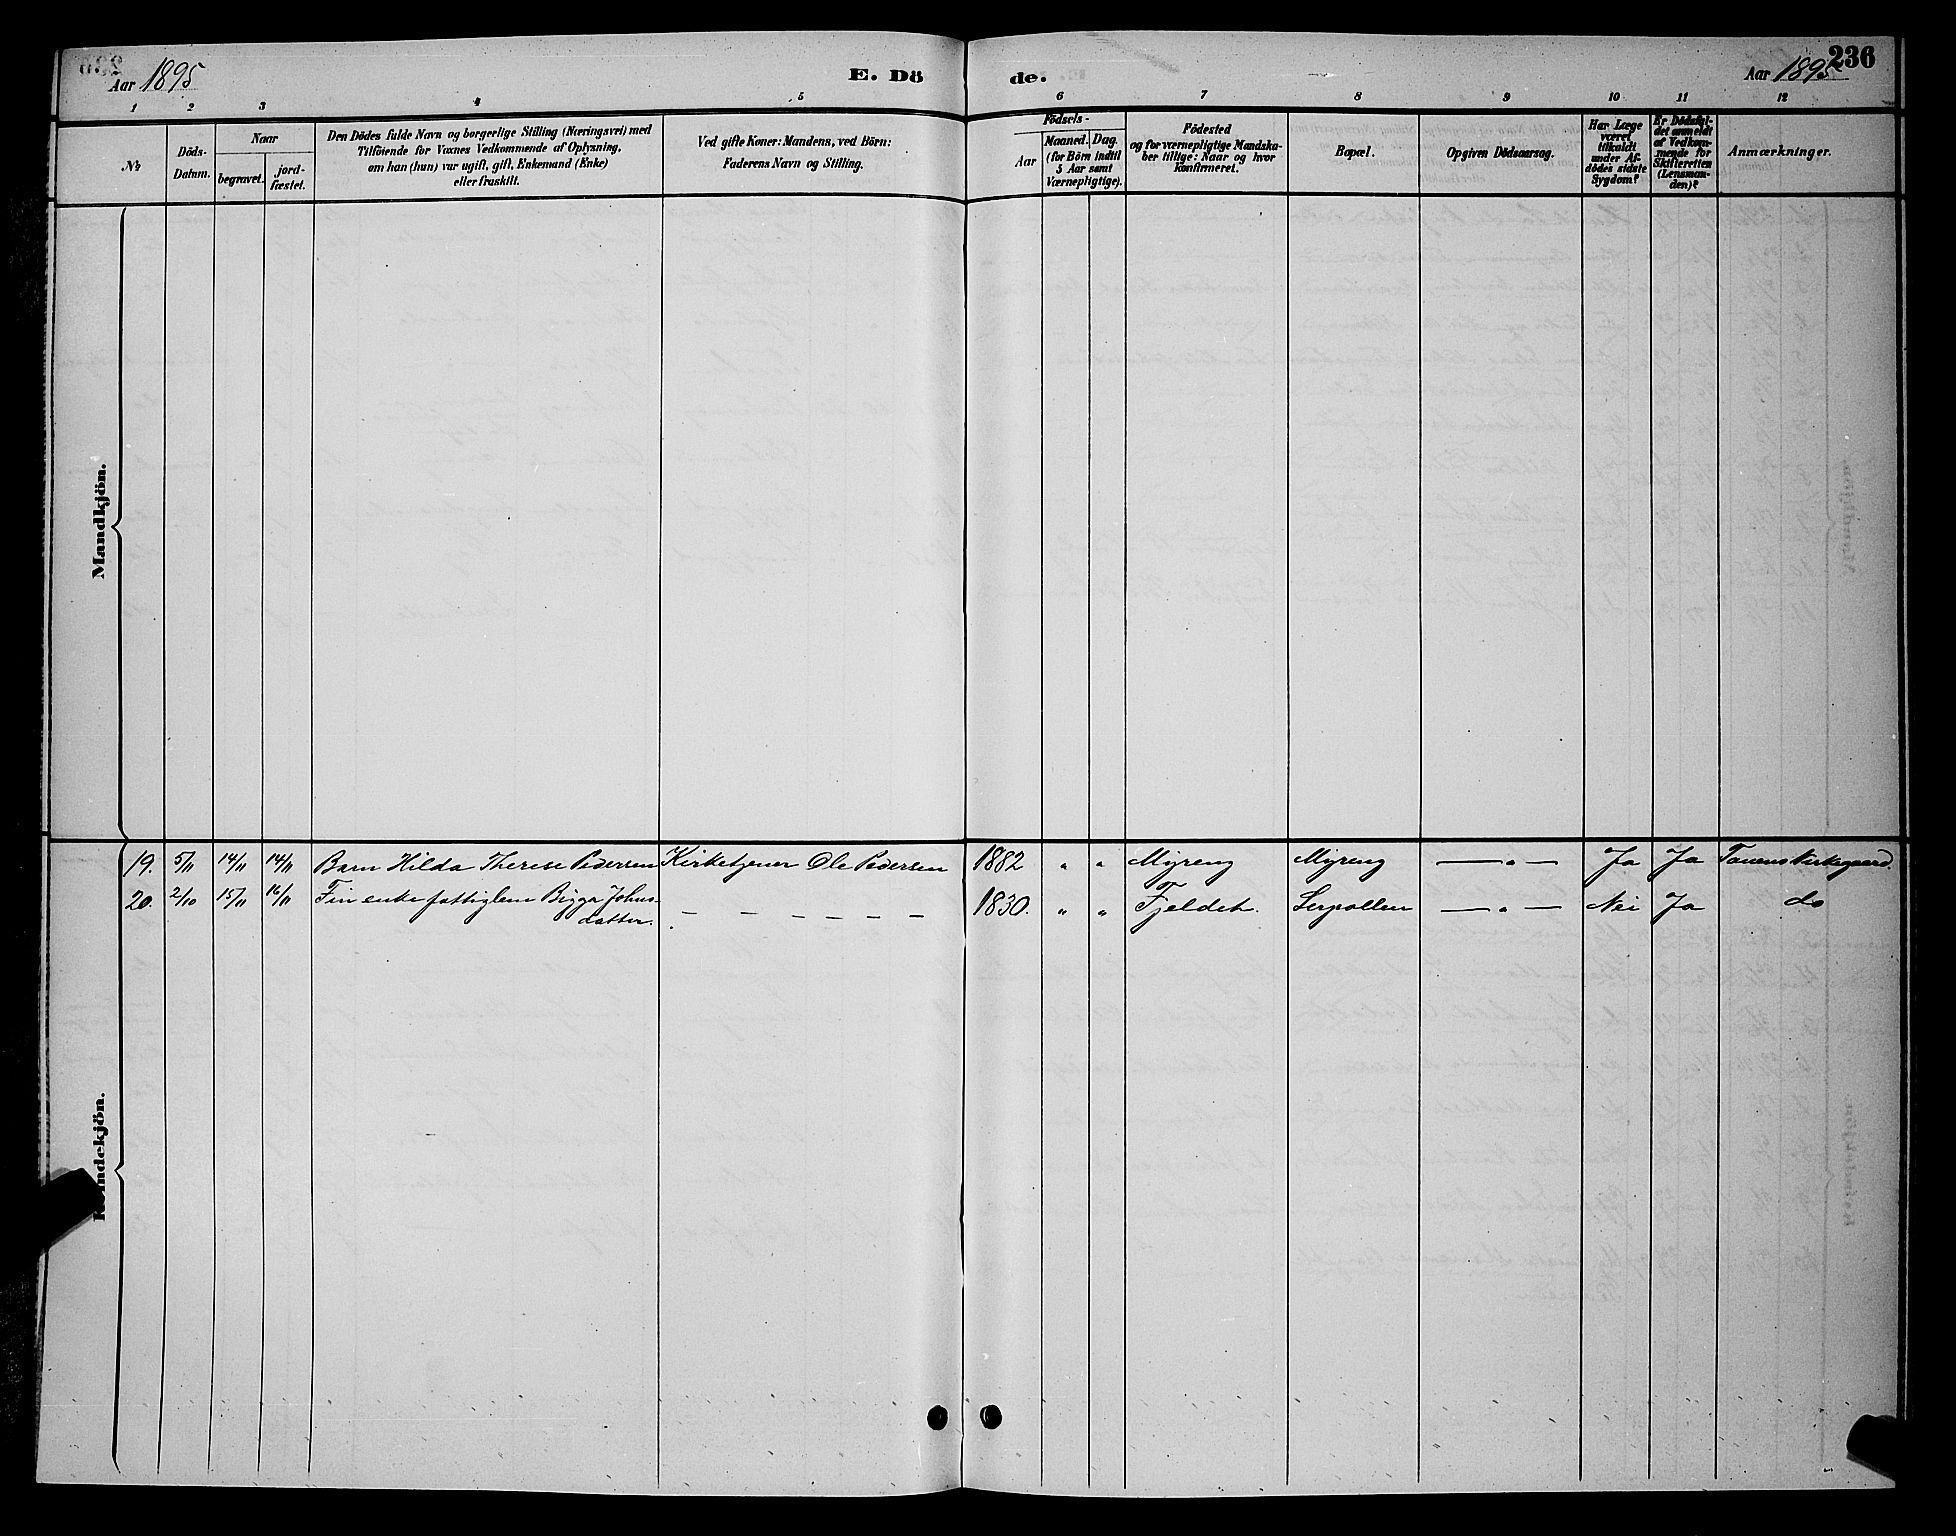 Aar 1895
E. Dö
de.
Aar 1895
236
1 2 3 4 5 6 7 8 9 10 11 12
№
Döds-
Datum.
Naar
begravet.
jord-
fæstet.
Den Dödes fulde Navn og borgerlige Stilling (Næringsvei) med
Tilföiende for Voxnes Vedkommende af Oplysning,
om han (hun) var ugift, gift, Enkemand (Enke)
eller fraskilt.
Ved gifte Koner: Mandens, ved Börn:
Faderens Navn og Stilling.
Födsels-
Aar
Maaned. Dag.
(for Börn indtil
5 Aar samt
Værnepligtige).
Födested
og for værnepligtige Mandska-
ber tillige: Naar og hvor
konfirmeret.
Bopæl.
Opgiven Dödsaarsag.
Har Læge
været
tilkaldt
under Af-
dödes sidste
Sygdom?
Er Dödsfal-
det anmeldt
af Vedkom-
mende for
Skifteretten
(Lensman-
den)?
Anmærkninger.
Mandkjön.
Kvindekjön.
19. 5/11 14/11 14/11 Barn Hilda Therese Pedersen Kirketjener Ole Pedersen 1882 " " Myreng Myreng — " — Ja Ja Tanens Kirkegaard.
20. 2/10 15/11 16/11 Fin enke fattiglem Bigga Johns- — — — — — — 1830. " " Fjeldet. Lerpollen — " — Nei Ja do
datter.